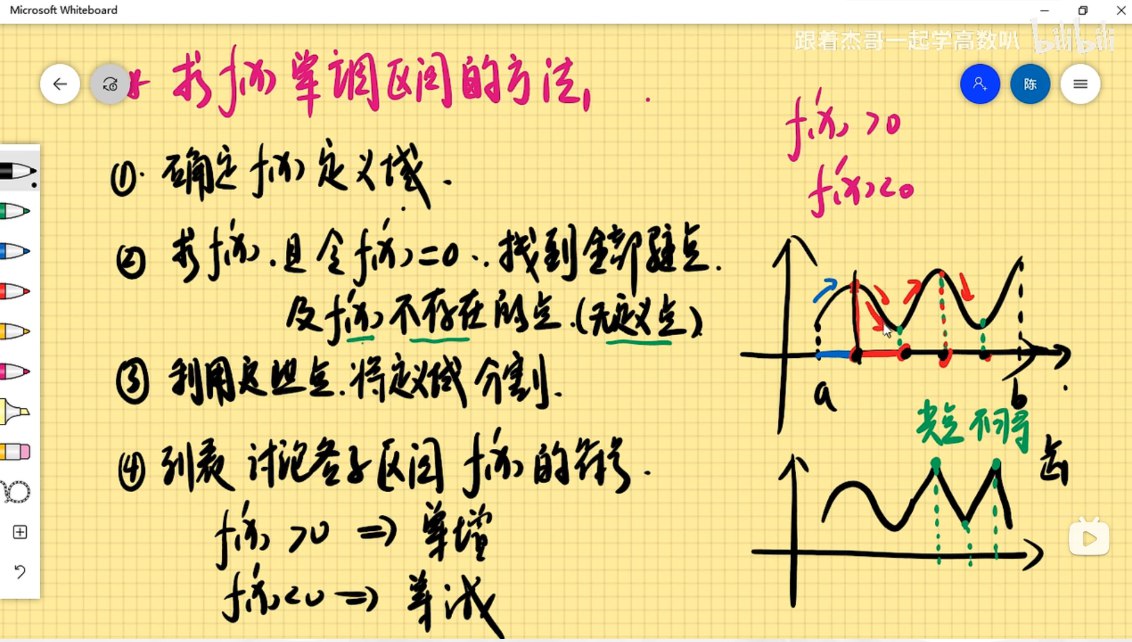 Microsoft Whiteboard
跟着杰哥一起学高数叭 bilibili
* 求f(x)单调区间的方法,
陈
f'(x)>0
f'(x)<0
①. 确定f(x)定义域.
② 求f'(x),且令f'(x)=0.找到全部驻点.
及f'(x)不存在的点.(无定义点)
③ 利用这些点.将定义域分割.
④ 列表 讨论各子区间 f'(x)的符号.
f'(x)>0 => 单增
f'(x)<0 => 单减
a
b
尖点不可导